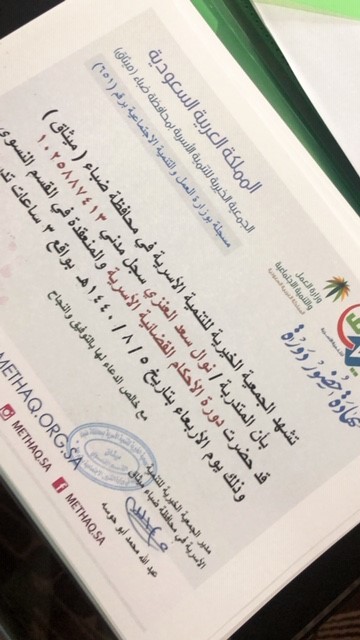 المملكة العربية السعودية
الجمعية الخيرية للتنمية الأسرية بمحافظة ضباء (ميثاق)
مسجلة بوزارة العمل و التنمية الاجتماعية برقم (٦٥١)
وزارة العمل
والتنمية الاجتماعية
شهادة حضور دورة
تشهد الجمعية الخيرية للتنمية الأسرية في محافظة ضباء ( ميثاق )
بأن المتدربة / نوال سعد العنزي سجل مدني ١٠٢٥٨١٧٤١٣
قد حضرت دورة الأحكام القضائية الأسرية والمنعقدة في القسم النسوي
وذلك يوم الأربعاء بتاريخ ١٤٤٠/٨/٥هـ بواقع ٣ ساعات
مع خالص الدعاء لها بالتوفيق والنجاح
مدير الجمعية الخيرية للتنمية
الأسرية في محافظة ضباء ميثاق
عبد الله محمد أبو حوسه
METHAQ.ORG.SA
METHAQ.SA
METHAQ.SA